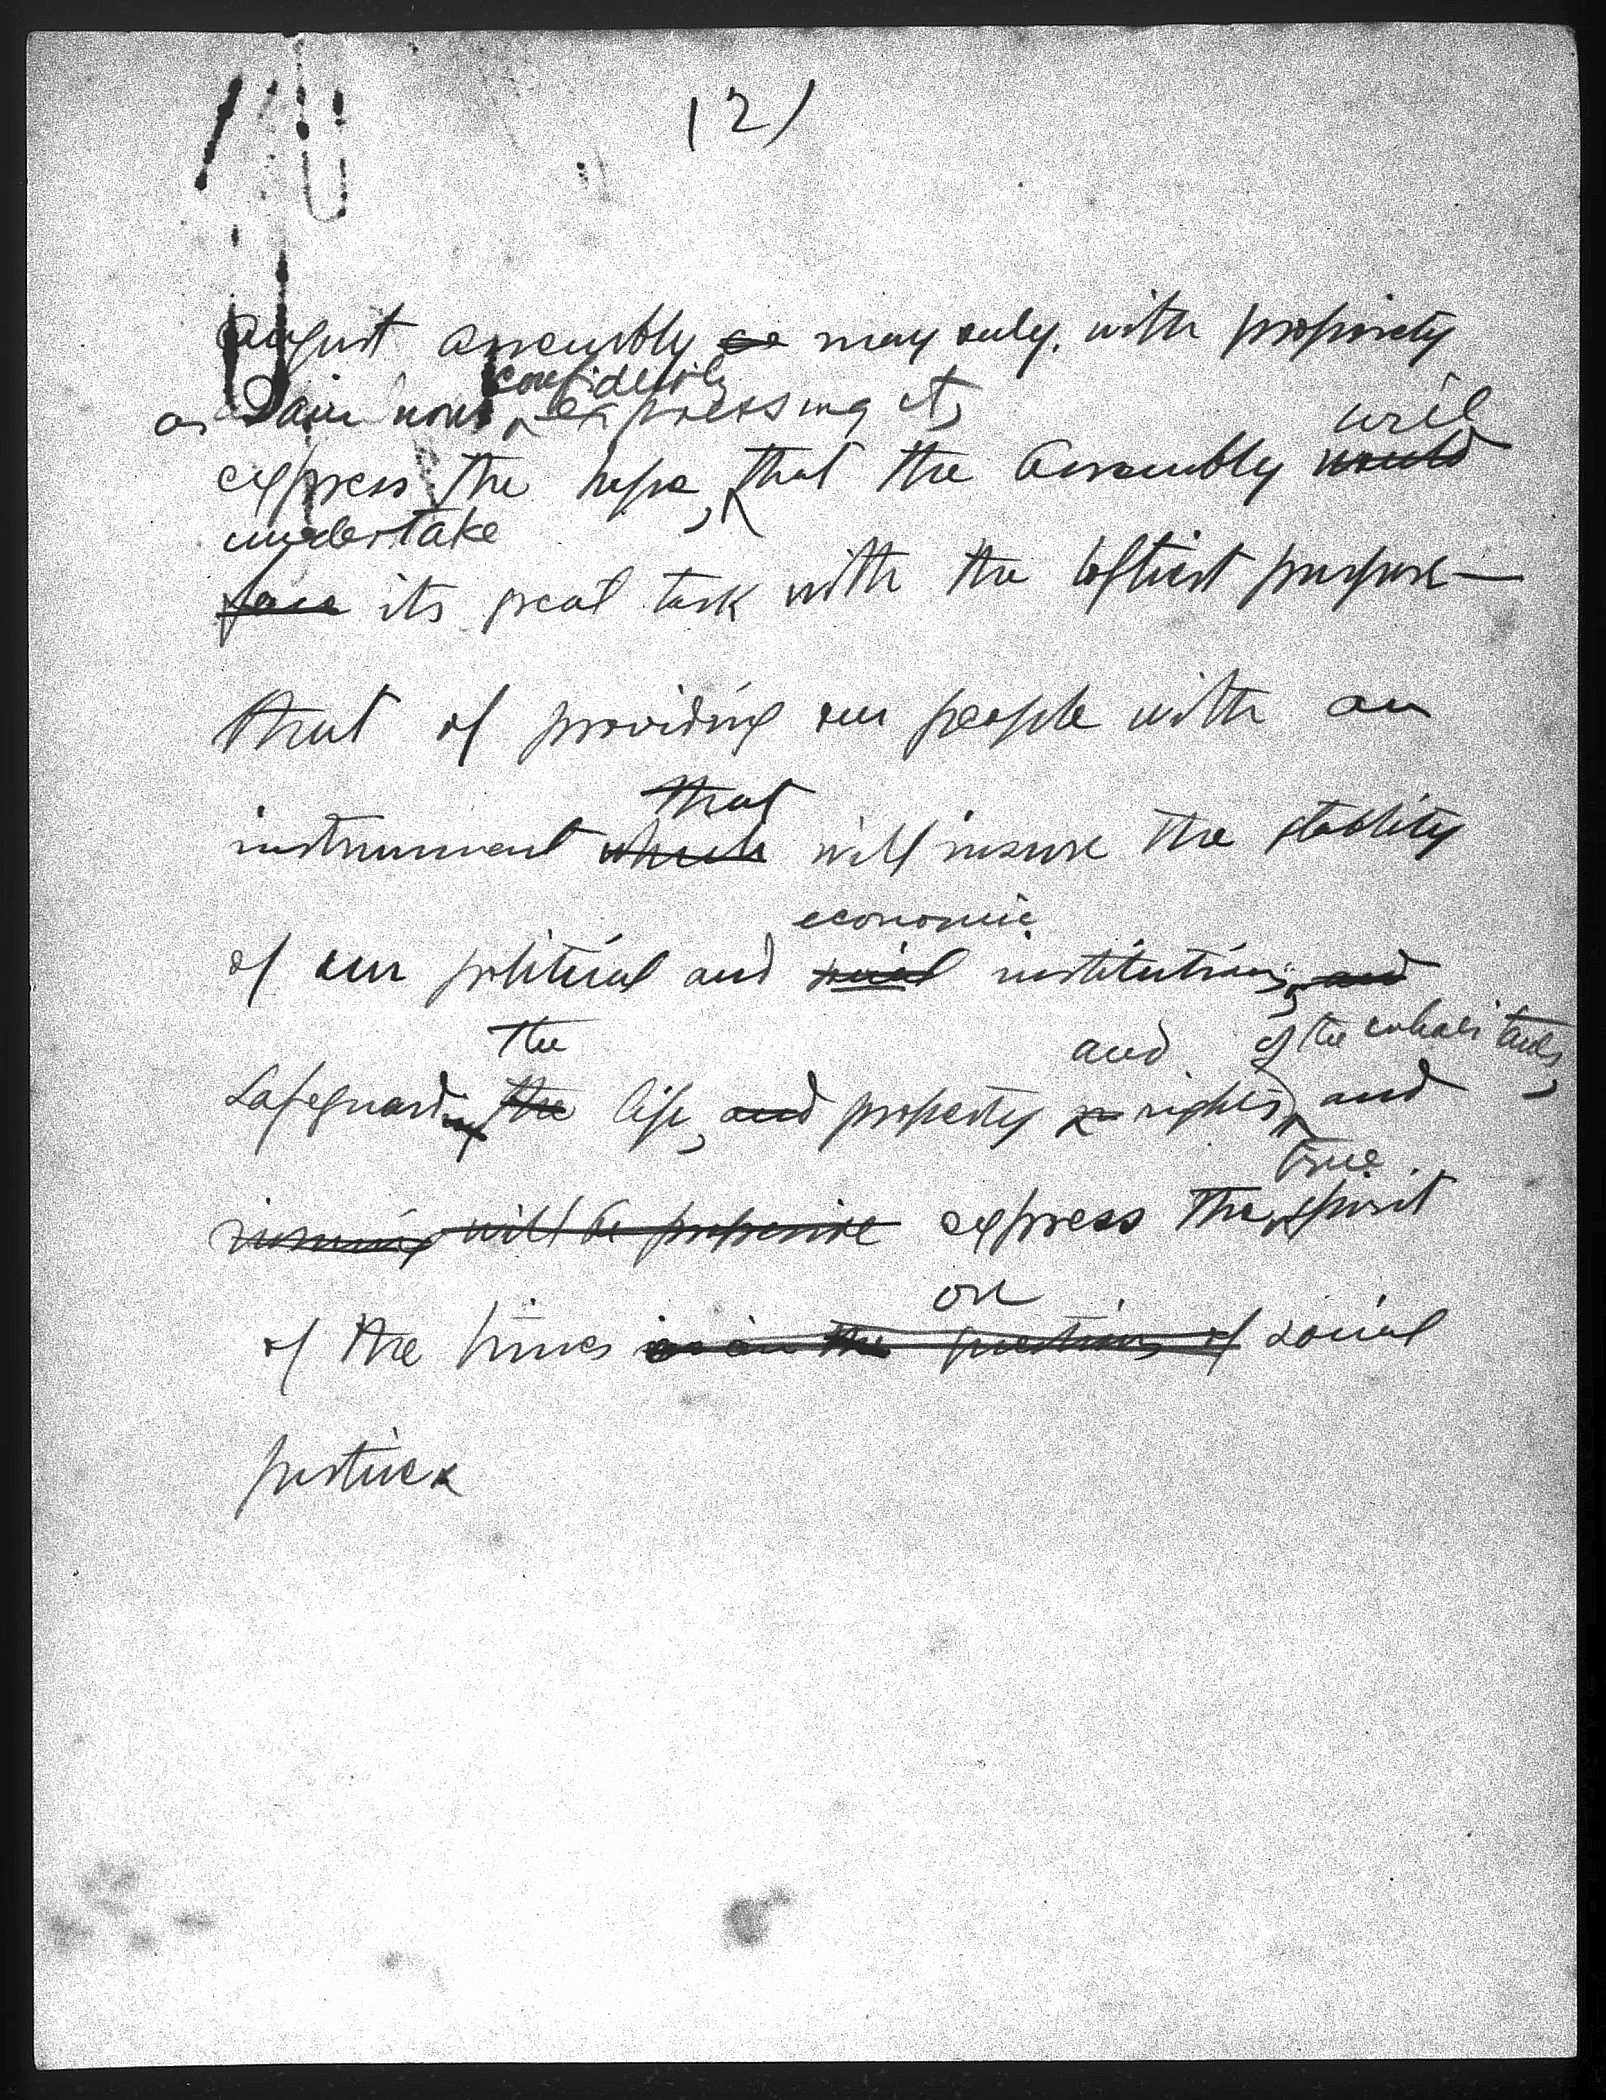 (2)
august assembly may only, with propriety
confidently
as I am now expressing it,
will
express the hope, that the Assembly would
undertake
face its great task with the loftiest purpose—
that of providing our people with an
that
instrument which will insure the stability
economic
of our political and social institutions, and
the and of the inhabitants,
safeguarding the life, and property rights, and
true
will be express the spirit
on
of the times as in the questions of social
justice